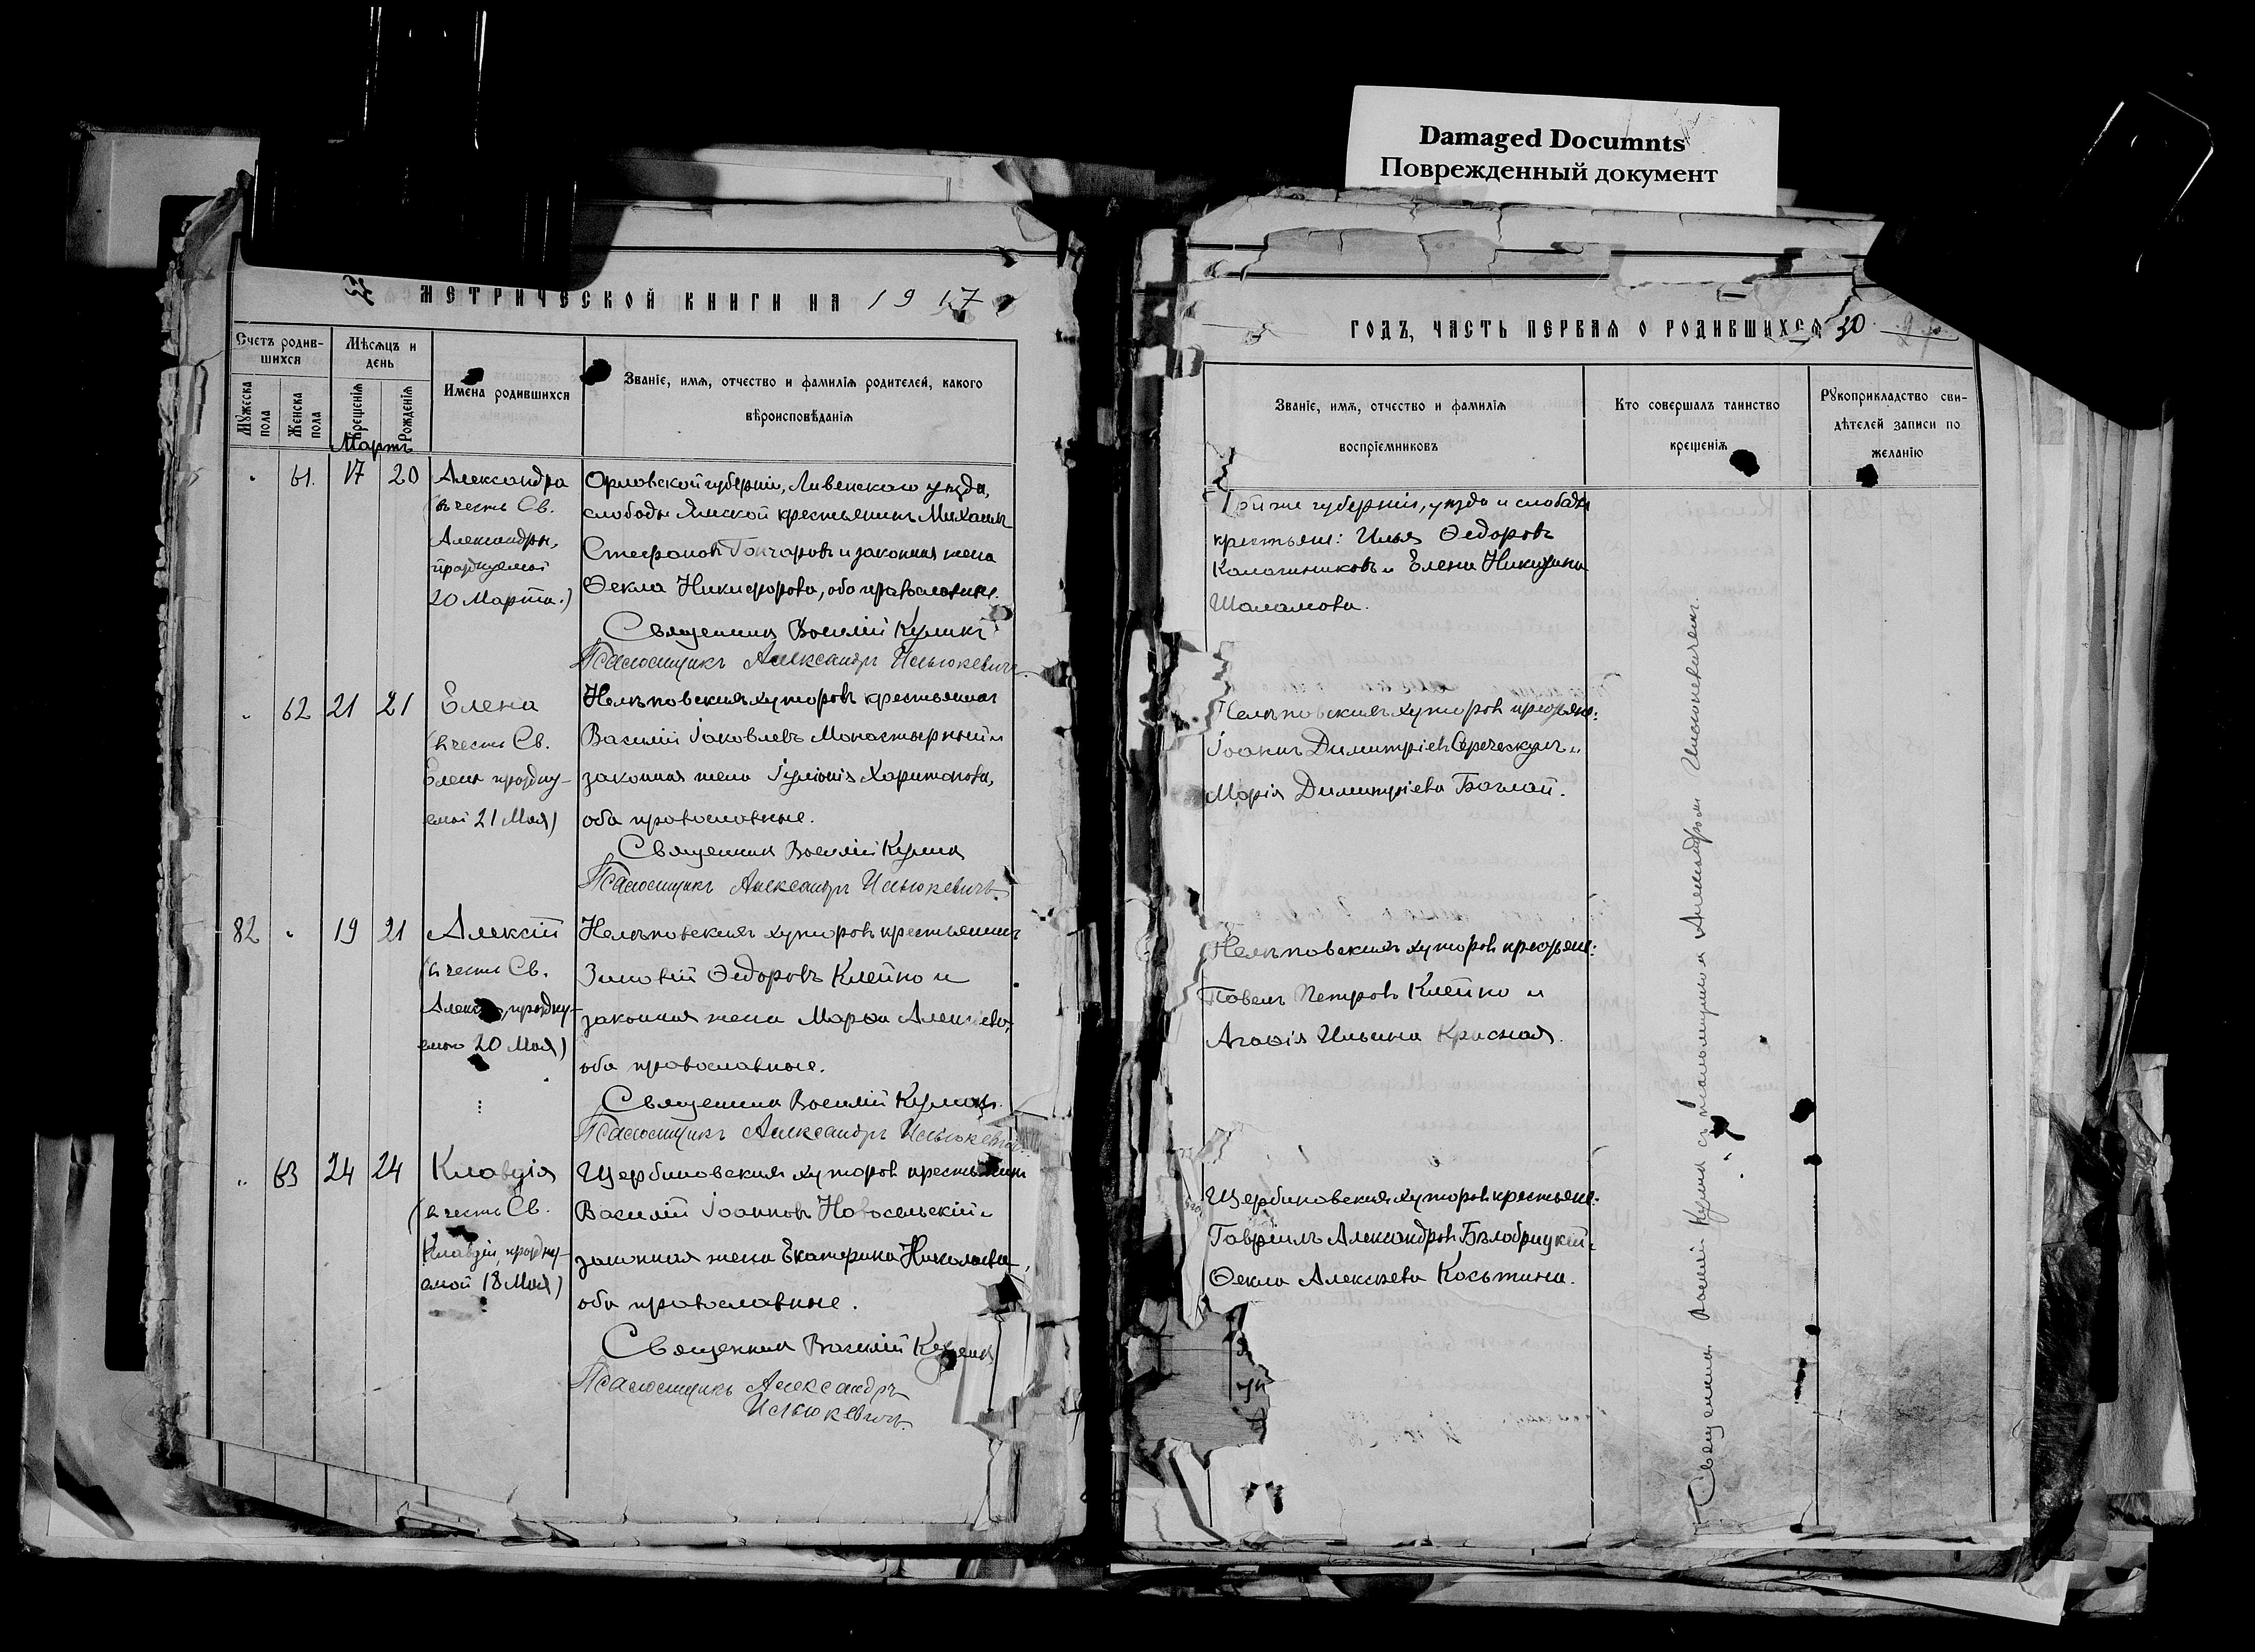 Damaged Documnts
Поврежденный документ
МЕТРИЧЕСКОЙ КНИГИ НА 1917
Счетъ родив-
шихся
Мѣсяцъ и
день
Мужеска
пола
Женска
пола
Крещенія
Рожденія
Мартъ
Имена родившихся
Званіе, имя, отчество и фамилія родителей, какого
вѣроисповѣданія
61. 17 20
Александра
(въ честь Св.
Александры,
празднуемой
20 Марта.)
Орловской губерніи, Ливенскаго уѣзда,
слободы Ямской крестьянинъ Михаилъ
Стефановъ Гончаровъ и законная жена
Ѳекла Никифорова, оба православные.
Священникъ Василій Куликъ
Псаломщикъ Александръ Ильюкевичъ
62 21 21
Елена
(въ честь Св.
Елены праздну-
емой 21 Мая)
Нелѣповскихъ хуторовъ крестьянинъ
Василій Іаковлевъ Монастырный и
законная жена Іуліанія Харитонова,
оба православные.
Священникъ Василій Куликъ
Псаломщикъ Александръ Ильюкевичъ.
82 19 21
Алексій
(въ честь Св.
праздну-
емаго 20 Мая)
Нелѣповскихъ хуторовъ крестьянинъ
Зиновій Ѳедоровъ Клейко и
законная жена Марѳа Алексіева,
оба православные.
Священникъ Василій Куликъ.
Псаломщикъ Александръ Ильюкевичъ
63 24 24
Клавдія
(въ честь Св.
Клавдіи, праздну-
емой 18 Мая)
Щербиновскихъ хуторовъ крестьянинъ
Василій Іоанновъ Новосельскій и
законная жена Екатерина Николаева,
оба православные.
Священникъ Василій Куликъ
Псаломщикъ Александръ
Ильюкевичъ.
ГОДЪ, ЧАСТЬ ПЕРВАЯ О РОДИВШИХСЯ 30
Званіе, имя, отчество и фамилія
воспріемниковъ
Кто совершалъ таинство
крещенія
Рукоприкладство сви-
дѣтелей записи по
желанію
Той же губерніи, уѣзда и слободы
крестьяне: Илья Ѳедоровъ
Калашниковъ и Елена Никитина
Шаламова.
Нелѣповскихъ хуторовъ крестьяне:
Іоаннъ Димитріевъ и
Марія Димитріева Баглай.
Нелѣповскихъ хуторовъ крестьяне:
Павелъ Петровъ Клейко и
Агаѳія Ильина Красная.
Щербиновскихъ хуторовъ крестьяне:
Гавріилъ Александровъ Бѣлобрицкій и
Ѳекла Алексѣева Косьтина.
Священникъ Василій Куликъ съ псаломщикомъ Александромъ Ильюкевичемъ.